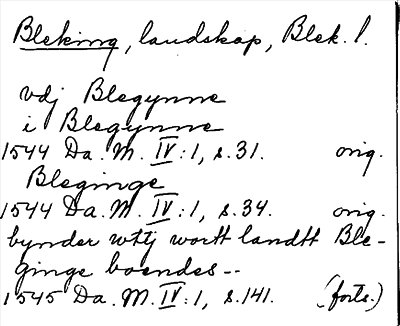 Bleking, landskap, Blek. l.
vdj Blegynne
i Blegynne
1544 Da. M. IV:1, s.31. orig.
Bleginge
1544 Da. M. IV:1, s.34. orig.
bynder wttj wortt landtt Ble-
ginge boendes --
1545 Da. M. IV:1, s.141. (forts.)